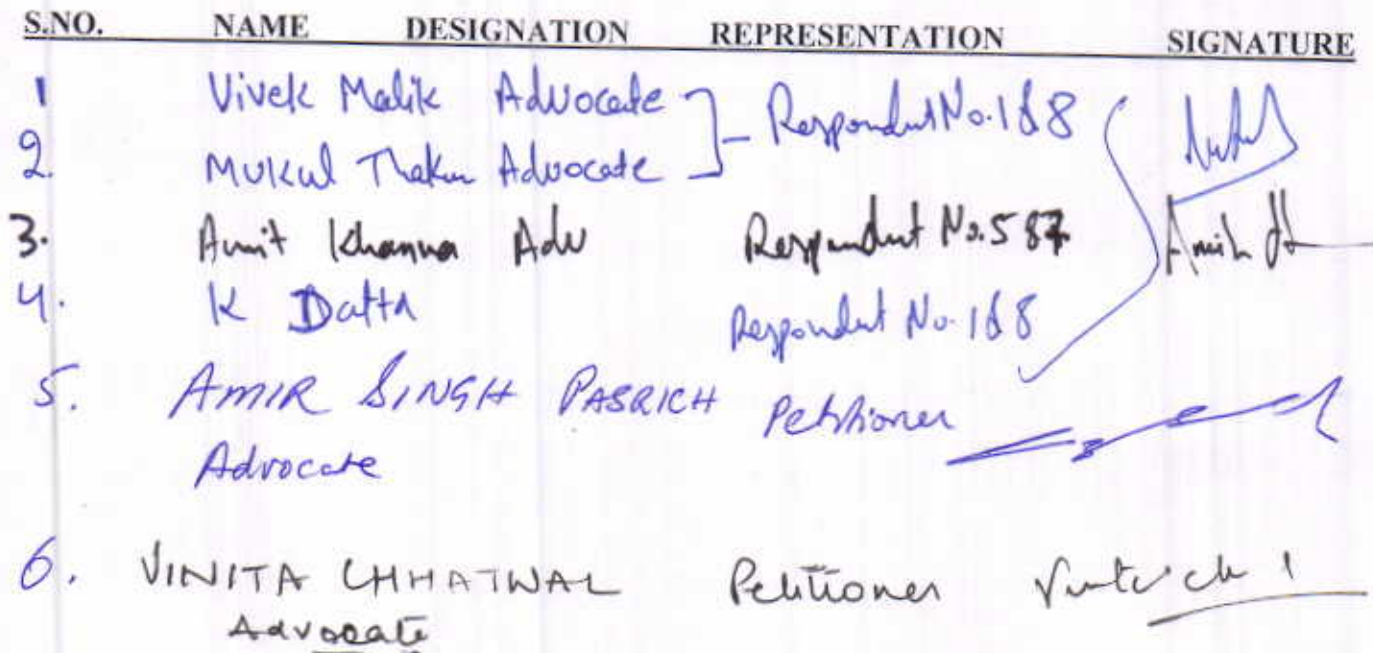 S.NO. NAME DESIGNATION REPRESENTATION SIGNATURE
1 Vivek Malik Advocate Respondent No. 1 & 8
2. Mukul Thakur Advocate
3. Amit Khanna Adv Respondent No. 5 & 7
4. K Datta Respondent No. 1 & 8
5. AMIR SINGH PASRICH Petitioner
Advocate
6. VINITA CHHATWAL Petitioner
Advocate